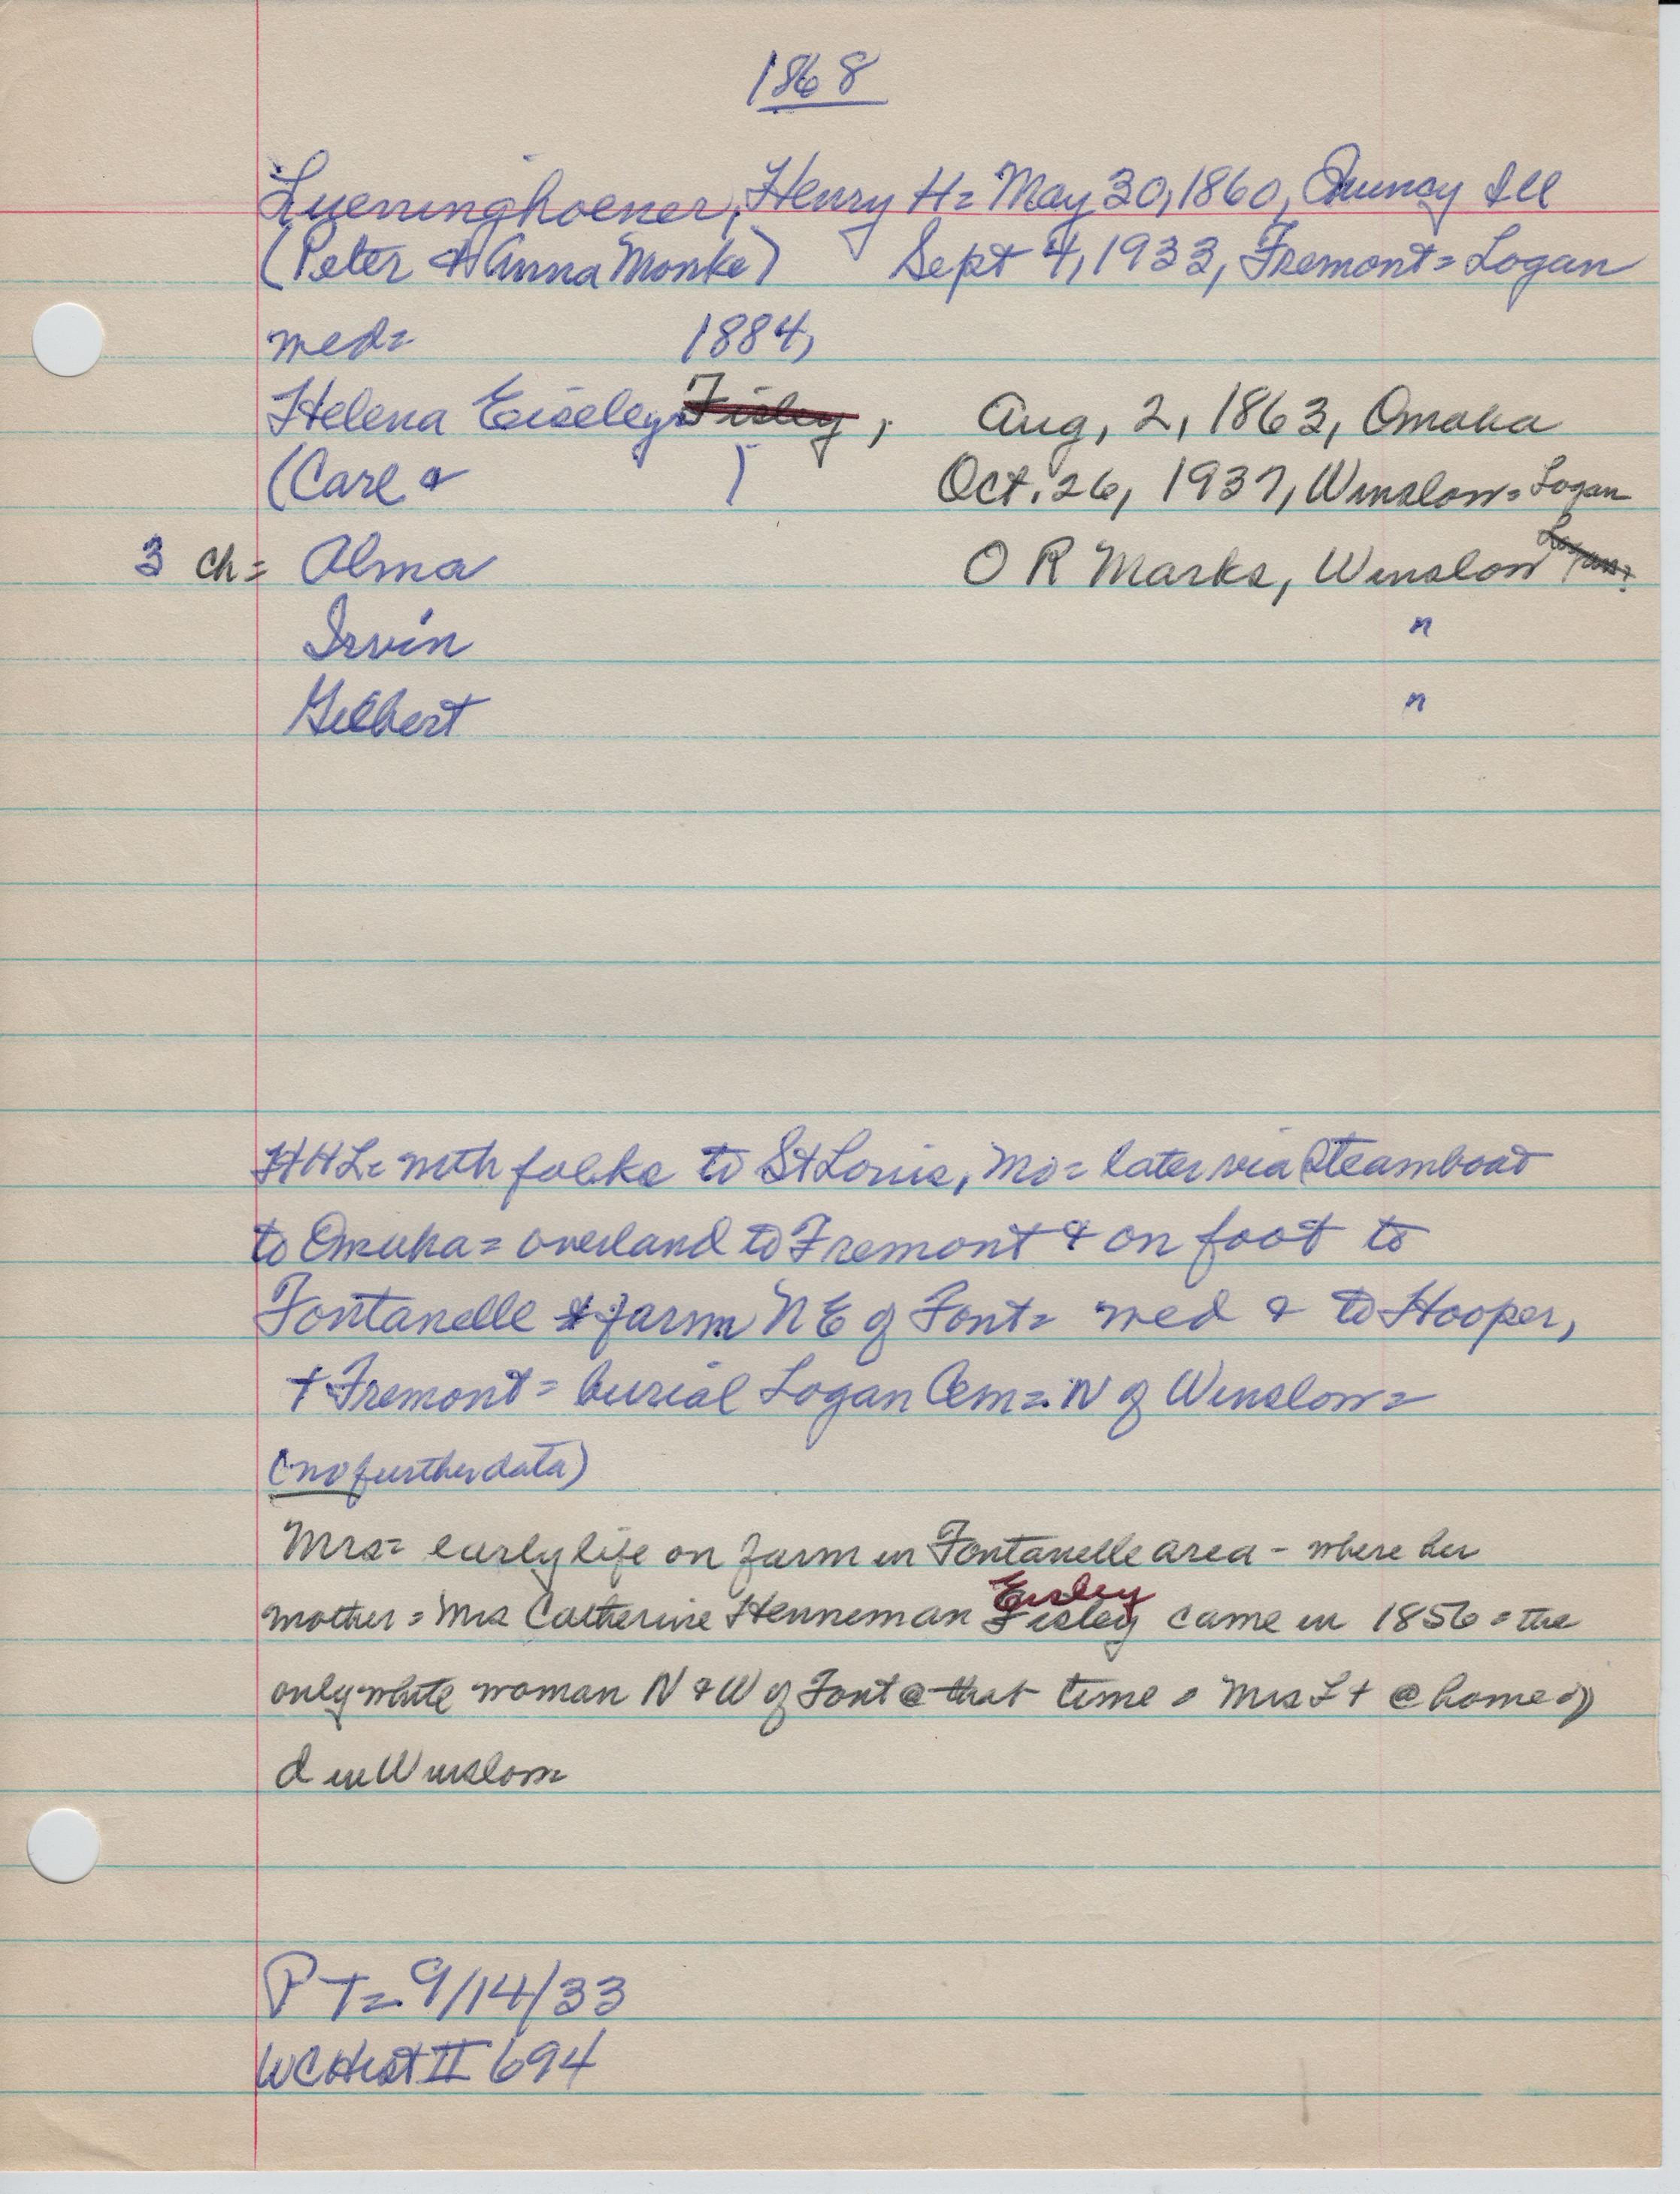 1868
Lueninghoener, Henry H = May 30, 1860, Quincy Ill
(Peter & Anna Monke) Sept 4, 1933, Fremont = Logan
med = 1884,
Helena Eiseley Fisley, Aug, 2, 1863, Omaha
(Carl & ) Oct. 26, 1937, Winslow = Logan
3 ch = Alma O R Marks, Winslow
Irvin "
Gilbert "
HHL = with folks to St Louis, Mo = later via steamboat
to Omaha = overland to Fremont & on foot to
Fontanelle & farm N E of Font = med & to Hooper,
+ Fremont = burial Logan Cem = N of Winslow =
(no further data)
Mrs = early life on farm in Fontanelle area - where her
Eisley
mother = Mrs Catherine Henneman Fisley came in 1856 = the
only white woman N & W of Font @ that time = Mrs L + @ home of
d in Winslow =
P T = 9/14/33
WC Hist II 694